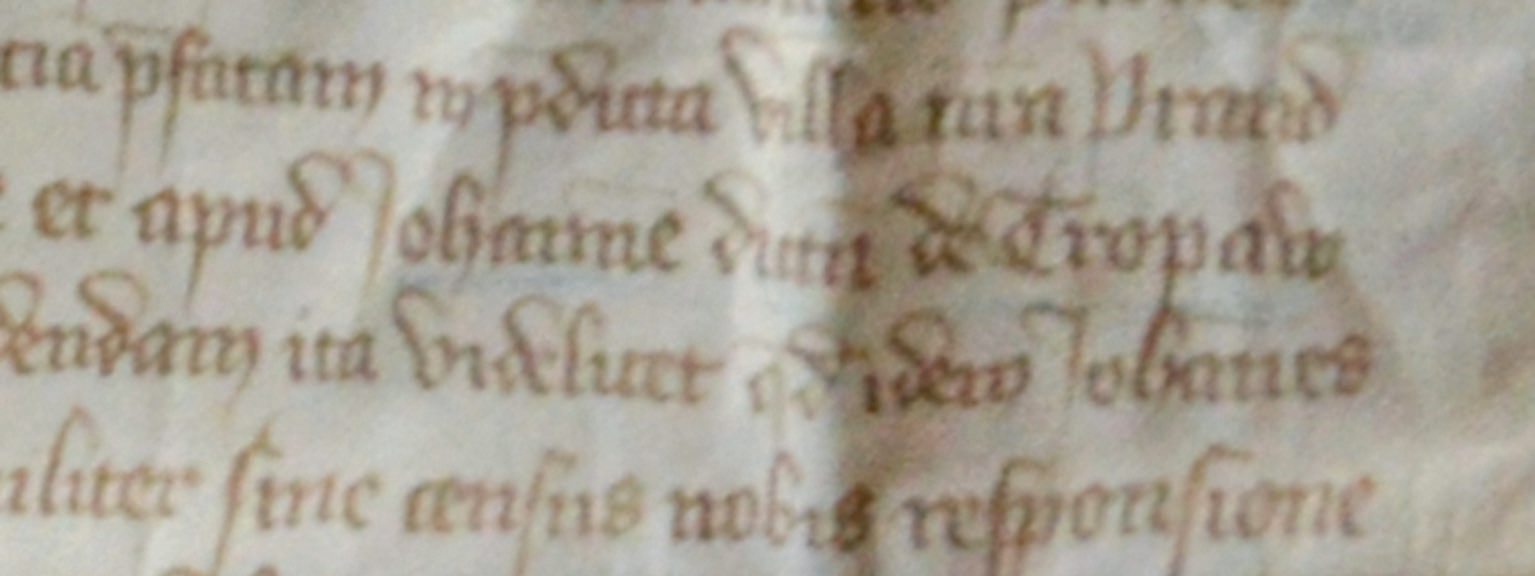 cia pfatam in pdicta villa
et apud Johanne dictu de Tropaw
dendam ita videlicet qd idem Johanes
sine census nobis responsione